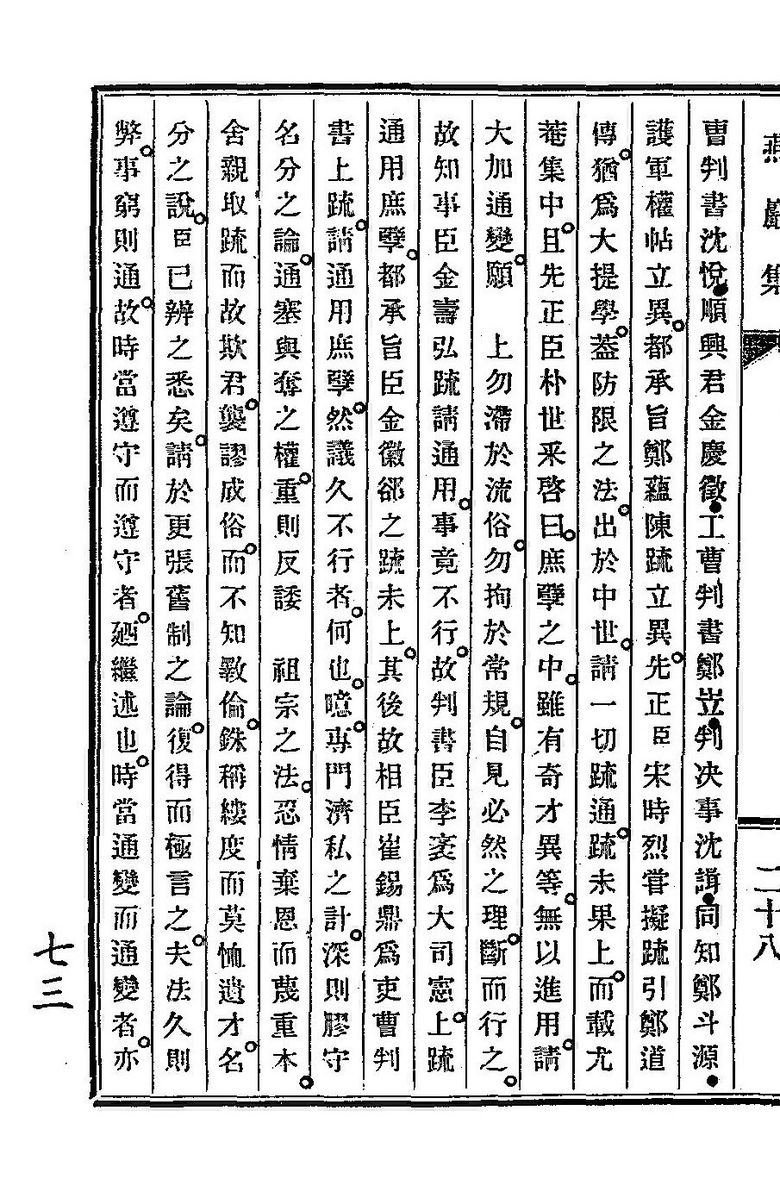 燕巖集
二十八
曹判書沈悅順興君金慶徵工曹判書鄭岦判决事沈諿同知鄭斗源
護軍權帖立異都承旨鄭蘊陳疏立異先正臣宋時烈嘗擬疏引鄭道
傳猶爲大提學蓋防限之法出於中世請一切疏通疏未果上而載尤
菴集中且先正臣朴世采啓曰庶孽之中雖有奇才異等無以進用請
大加通變願　上勿滯於流俗勿拘於常規自見必然之理斷而行之
故知事臣金壽弘疏請通用事竟不行故判書臣李袤爲大司憲上疏
通用庶孽都承旨臣金徽郤之疏未上其後故相臣崔錫鼎爲吏曹判
書上疏請通用庶孽然議久不行者何也噫專門濟私之計深則膠守
名分之論通塞與奪之權重則反諉　祖宗之法忍情棄恩而蔑重本
舍親取疏而故欺君襲謬成俗而不知斁倫銖稱縷度而莫恤遺才名
分之說臣已辨之悉矣請於更張舊制之論復得而極言之夫法久則
弊事窮則通故時當遵守而遵守者廼繼述也時當通變而通變者亦
七三